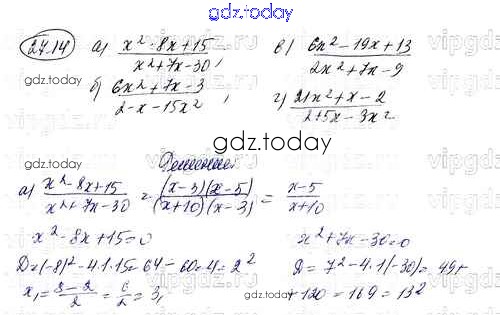 gdz.today
24.14 а) x²-8x+15 / x²+7x-30, в) 6x²-19x+13 / 2x²+7x-9
gdz.today
б) 6x²+7x-3 / 2-x-15x², г) 21x²+x-2 / 2+5x-3x²
gdz.today
Решение:
а) x²-8x+15 / x²+7x-30 = (x-3)(x-5) / (x+10)(x-3) = x-5 / x+10
x²-8x+15=0 x²+7x-30=0
D=(-8)²-4·1·15=64-60=4=2² D=7²-4·1(-30)=49+
x₁=8-2/2=6/2=3, +120=169=13²
gdz.today
gdz.today